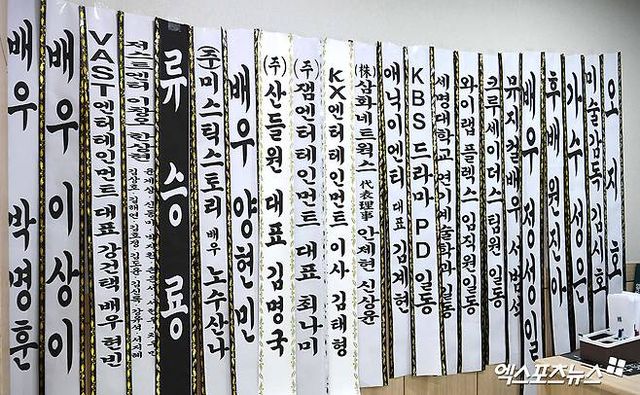 배우 박명훈
배우 이상이
VAST엔터테인먼트 대표 강건택 배우 현빈
저스트엔터
류승룡
(주)미스틱스토리 배우 노수산나
배우 양현빈
(주)산들원 대표 김명국
(주)잼엔터테인먼트 대표 최나미
KX엔터테인먼트 이사 김태형
(株)삼화네트웍스 代表理事 안제현 신상윤
애닉이엔티 대표 김제현
KBS 드라마 PD 일동
세명대학교 연기예술학과 일동
와이랩 플렉스 임직원일동
크루세이더스팀원 일동
뮤지컬배우 서범석
배우 정성일
후배 원진아
가수 성은
미술감독 김시호
오지호
엑스포츠뉴스